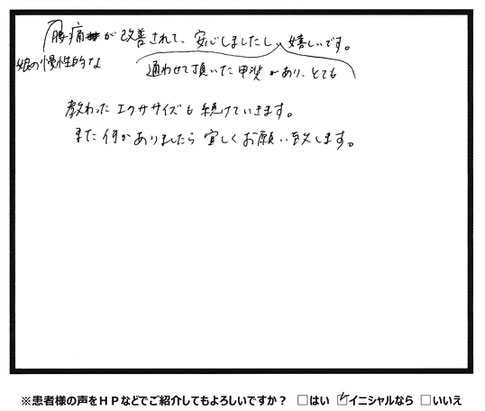 腰痛が改善されて、安心しましたし、嬉しいです。
娘の慢性的な
通わせて頂いた甲斐があり、とても
教わったエクササイズも続けていきます。
また何かありましたら宜しくお願い致します。
※患者様の声をHPなどでご紹介してもよろしいですか？ □はい ☑イニシャルなら □いいえ